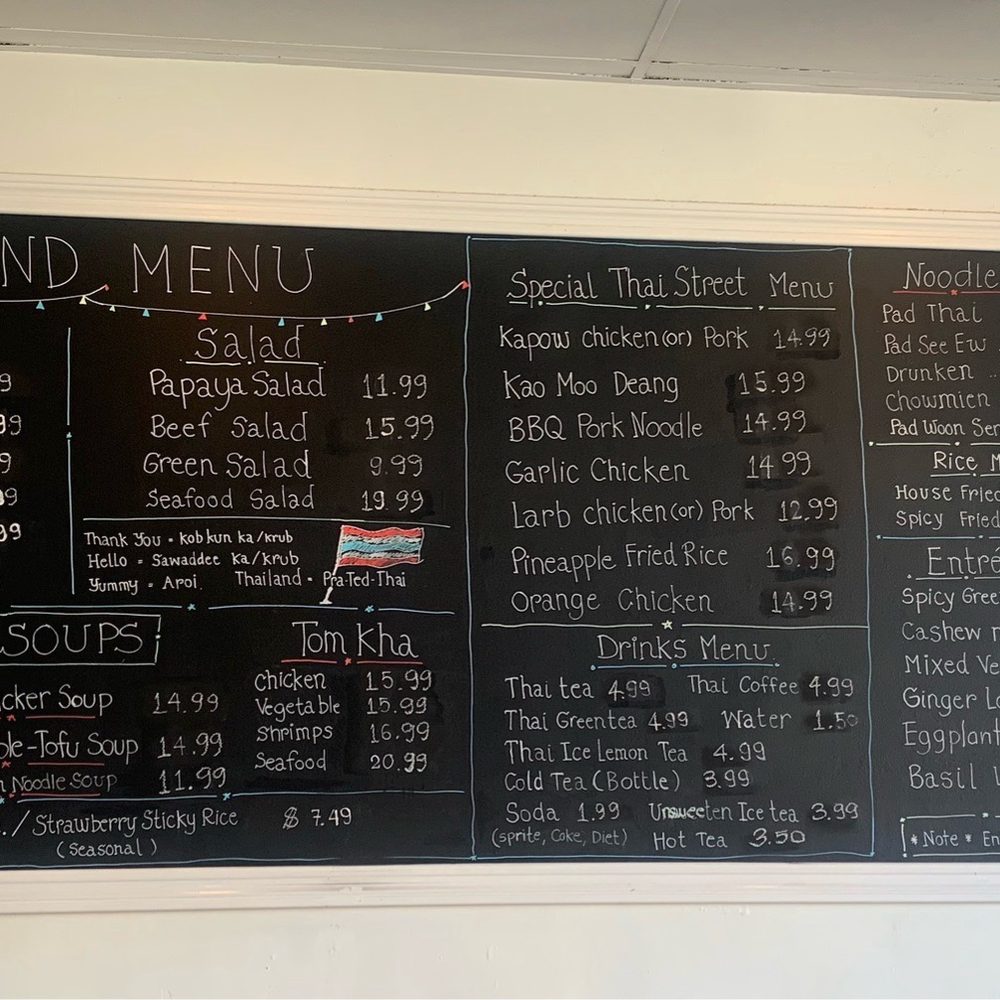 ND MENU
9
99
9
99
99
Salad
Papaya Salad 11.99
Beef Salad 15.99
Green Salad 9.99
Seafood Salad 19.99
Thank You - kob kun ka/krub
Hello = Sawaddee ka/krub
Yummy = Aroi. Thailand - Pra-Ted-Thai
SOUPS
cker Soup 14.99
ble-Tofu Soup 14.99
n Noodle Soup 11.99
Tom Kha
Chicken 15.99
Vegetable 15.99
Shrimps 16.99
Seafood 20.99
./Strawberry Sticky Rice $ 7.49
(Seasonal)
Special Thai Street Menu
Kapow chicken(or) Pork 14.99
Kao Moo Deang 15.99
BBQ Pork Noodle 14.99
Garlic Chicken 14.99
Larb chicken(or) Pork 12.99
Pineapple Fried Rice 16.99
Orange Chicken 14.99
Drinks Menu
Thai tea 4.99 Thai Coffee 4.99
Thai Greentea 4.99 Water 1.50
Thai Ice Lemon Tea 4.99
Cold Tea (Bottle) 3.99
Soda 1.99 Unsweeten Ice tea 3.99
(sprite, Coke, Diet) Hot Tea 3.50
Noodle
Pad Thai
Pad See Ew
Drunken ..
Chowmien
Pad Woon Sen
Rice M
House Fried
Spicy Fried
Entre
Spicy Gree
Cashew n
Mixed Ve
Ginger Lo
Eggplant
Basil
* Note * En